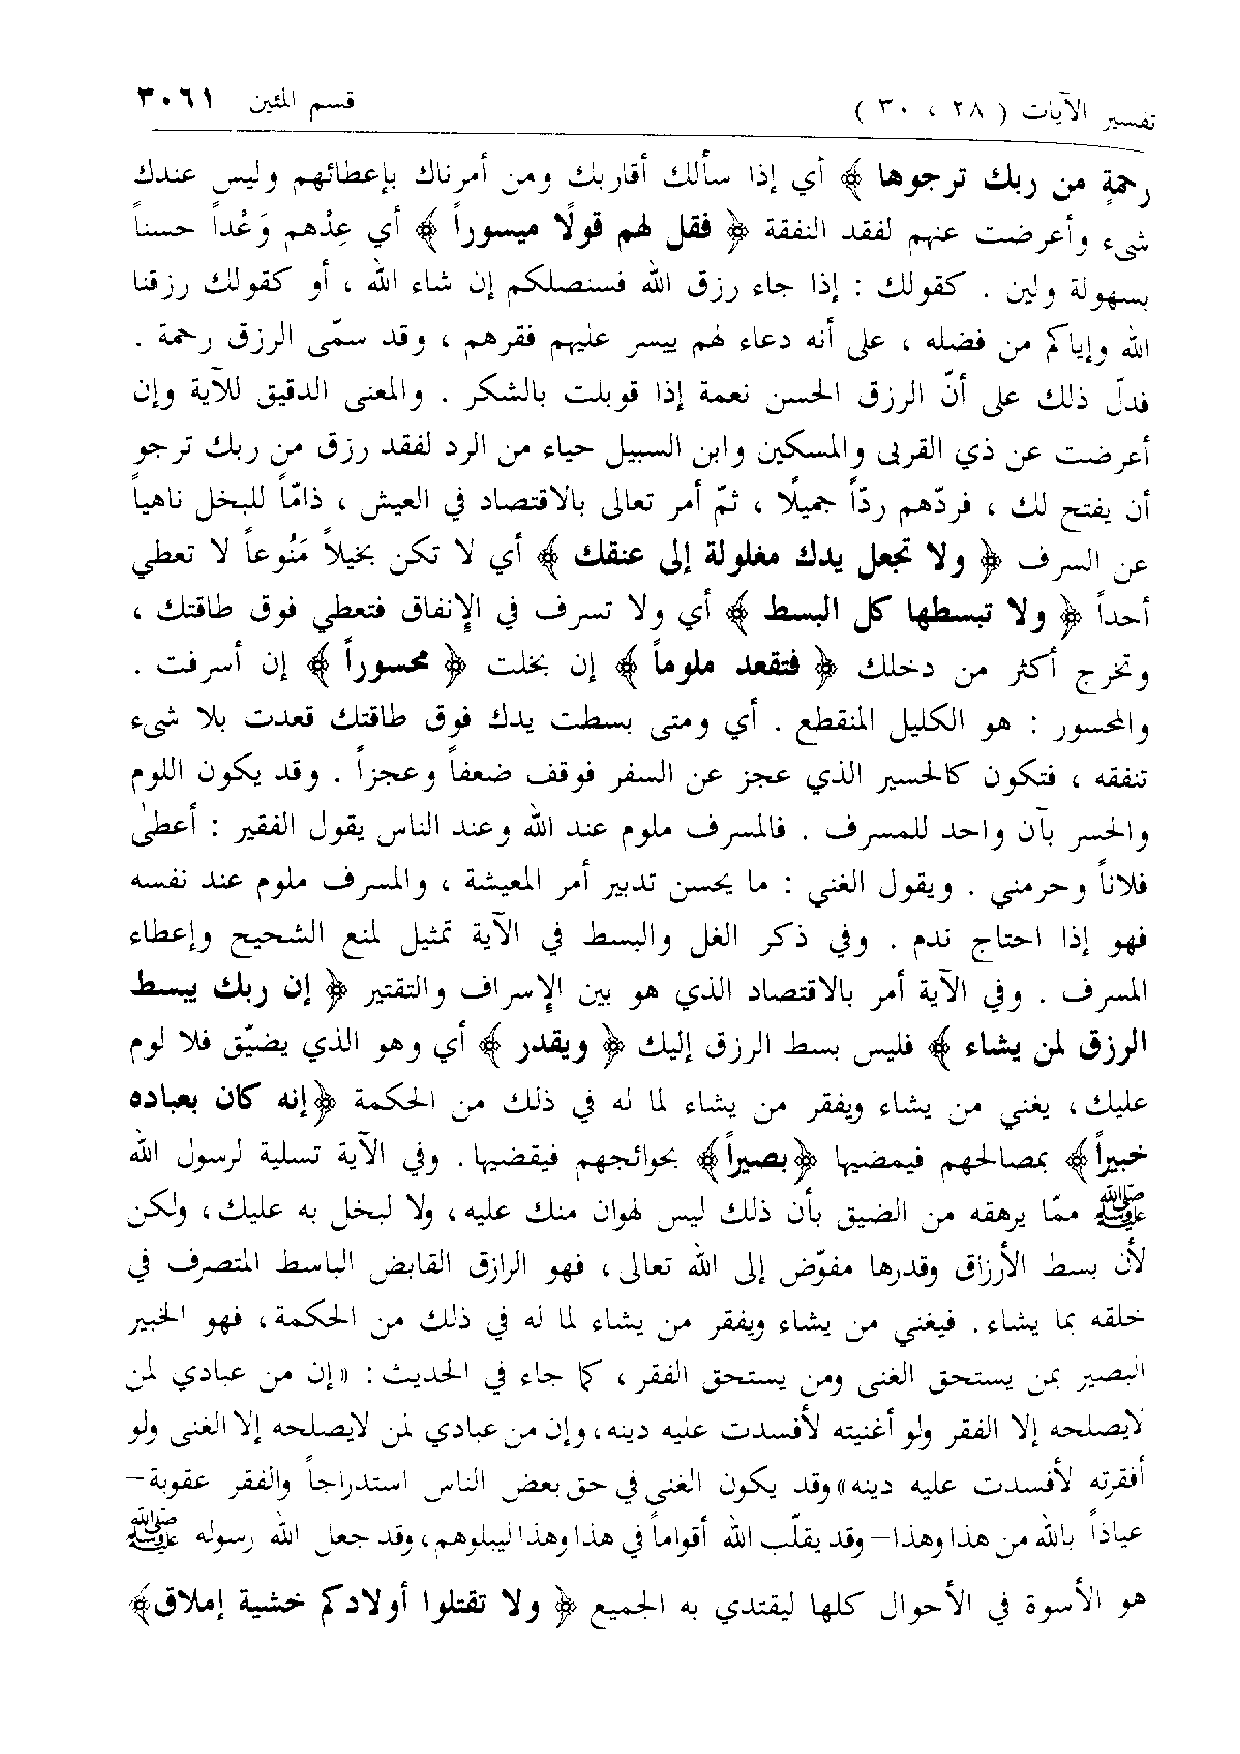 تفسير الآيات ( ٢٨ ، ٣٠ ) قسم المئين ٣٠٦١
رحمةٍ من ربك ترجوها ﴾ أي إذا سألك أقاربك ومن أمرناك بإعطائهم وليس عندك
شىء وأعرضت عنهم لفقد النفقة ﴿ فقل لهم قولاً ميسوراً ﴾ أي عِدْهم وَعْداً حسناً
بسهولة ولين . كقولك : إذا جاء رزق الله فسنصلكم إن شاء الله ، أو كقولك رزقنا
الله وإياكم من فضله ، على أنه دعاء لهم ييسر عليهم فقرهم ، وقد سمّى الرزق رحمة .
فدلّ ذلك على أنّ الرزق الحسن نعمة إذا قوبلت بالشكر . والمعنى الدقيق للآية وإن
أعرضت عن ذي القربى والمسكين وابن السبيل حياء من الرد لفقد رزق من ربك ترجو
أن يفتح لك ، فردّهم ردّاً جميلاً ، ثمّ أمر تعالى بالاقتصاد في العيش ، ذامّاً للبخل ناهياً
عن السرف ﴿ ولا تجعل يدك مغلولة إلى عنقك ﴾ أي لا تكن بخيلاً مَنُوعاً لا تعطي
أحداً ﴿ ولا تبسطها كل البسط ﴾ أي ولا تسرف في الإنفاق فتعطي فوق طاقتك ،
وتخرج أكثر من دخلك ﴿ فتقعد ملوماً ﴾ إن بخلت ﴿ محسوراً ﴾ إن أسرفت .
والمحسور : هو الكليل المنقطع . أي ومتى بسطت يدك فوق طاقتك قعدت بلا شىء
تنفقه ، فتكون كالحسير الذي عجز عن السفر فوقف ضعفاً وعجزاً . وقد يكون اللوم
والحسر بآن واحد للمسرف . فالمسرف ملوم عند الله وعند الناس يقول الفقير : أعطى
فلاناً وحرمني . ويقول الغني : ما يحسن تدبير أمر المعيشة ، والمسرف ملوم عند نفسه
فهو إذا احتاج ندم . وفي ذكر الغل والبسط في الآية تمثيل لمنع الشحيح وإعطاء
المسرف . وفي الآية أمر بالاقتصاد الذي هو بين الإسراف والتقتير ﴿ إن ربك يبسط
الرزق لمن يشاء ﴾ فليس بسط الرزق إليك ﴿ ويقدر ﴾ أي وهو الذي يضيّق فلا لوم
عليك ، يغني من يشاء ويفقر من يشاء لما له في ذلك من الحكمة ﴿إنه كان بعباده
خبيراً ﴾ بمصالحهم فيمضيها ﴿بصيراً﴾ بحوائجهم فيقضيها . وفي الآية تسلية لرسول الله
ﷺ ممّا يرهقه من الضيق بأن ذلك ليس لهوان منك عليه ، ولا لبخل به عليك ، ولكن
لأن بسط الأرزاق وقدرها مفوّض إلى الله تعالى ، فهو الرازق القابض الباسط المتصرف في
خلقه بما يشاء . فيغني من يشاء ويفقر من يشاء لما له في ذلك من الحكمة ، فهو الخبير
البصير بمن يستحق الغنى ومن يستحق الفقر ، كما جاء في الحديث : «إن من عبادي لمن
لايصلحه إلا الفقر ولو أغنيته لأفسدت عليه دينه ، وإن من عبادي لمن لايصلحه إلا الغنى ولو
أفقرته لأفسدت عليه دينه» وقد يكون الغنى في حق بعض الناس استدراجاً والفقر عقوبة –
عياذاً بالله من هذا وهذا – وقد يقلّب الله أقواماً في هذا وهذا ليبلوهم ، وقد جعل الله رسوله ﷺ
هو الأسوة في الأحوال كلها ليقتدي به الجميع ﴿ ولا تقتلوا أولادكم خشية إملاق﴾